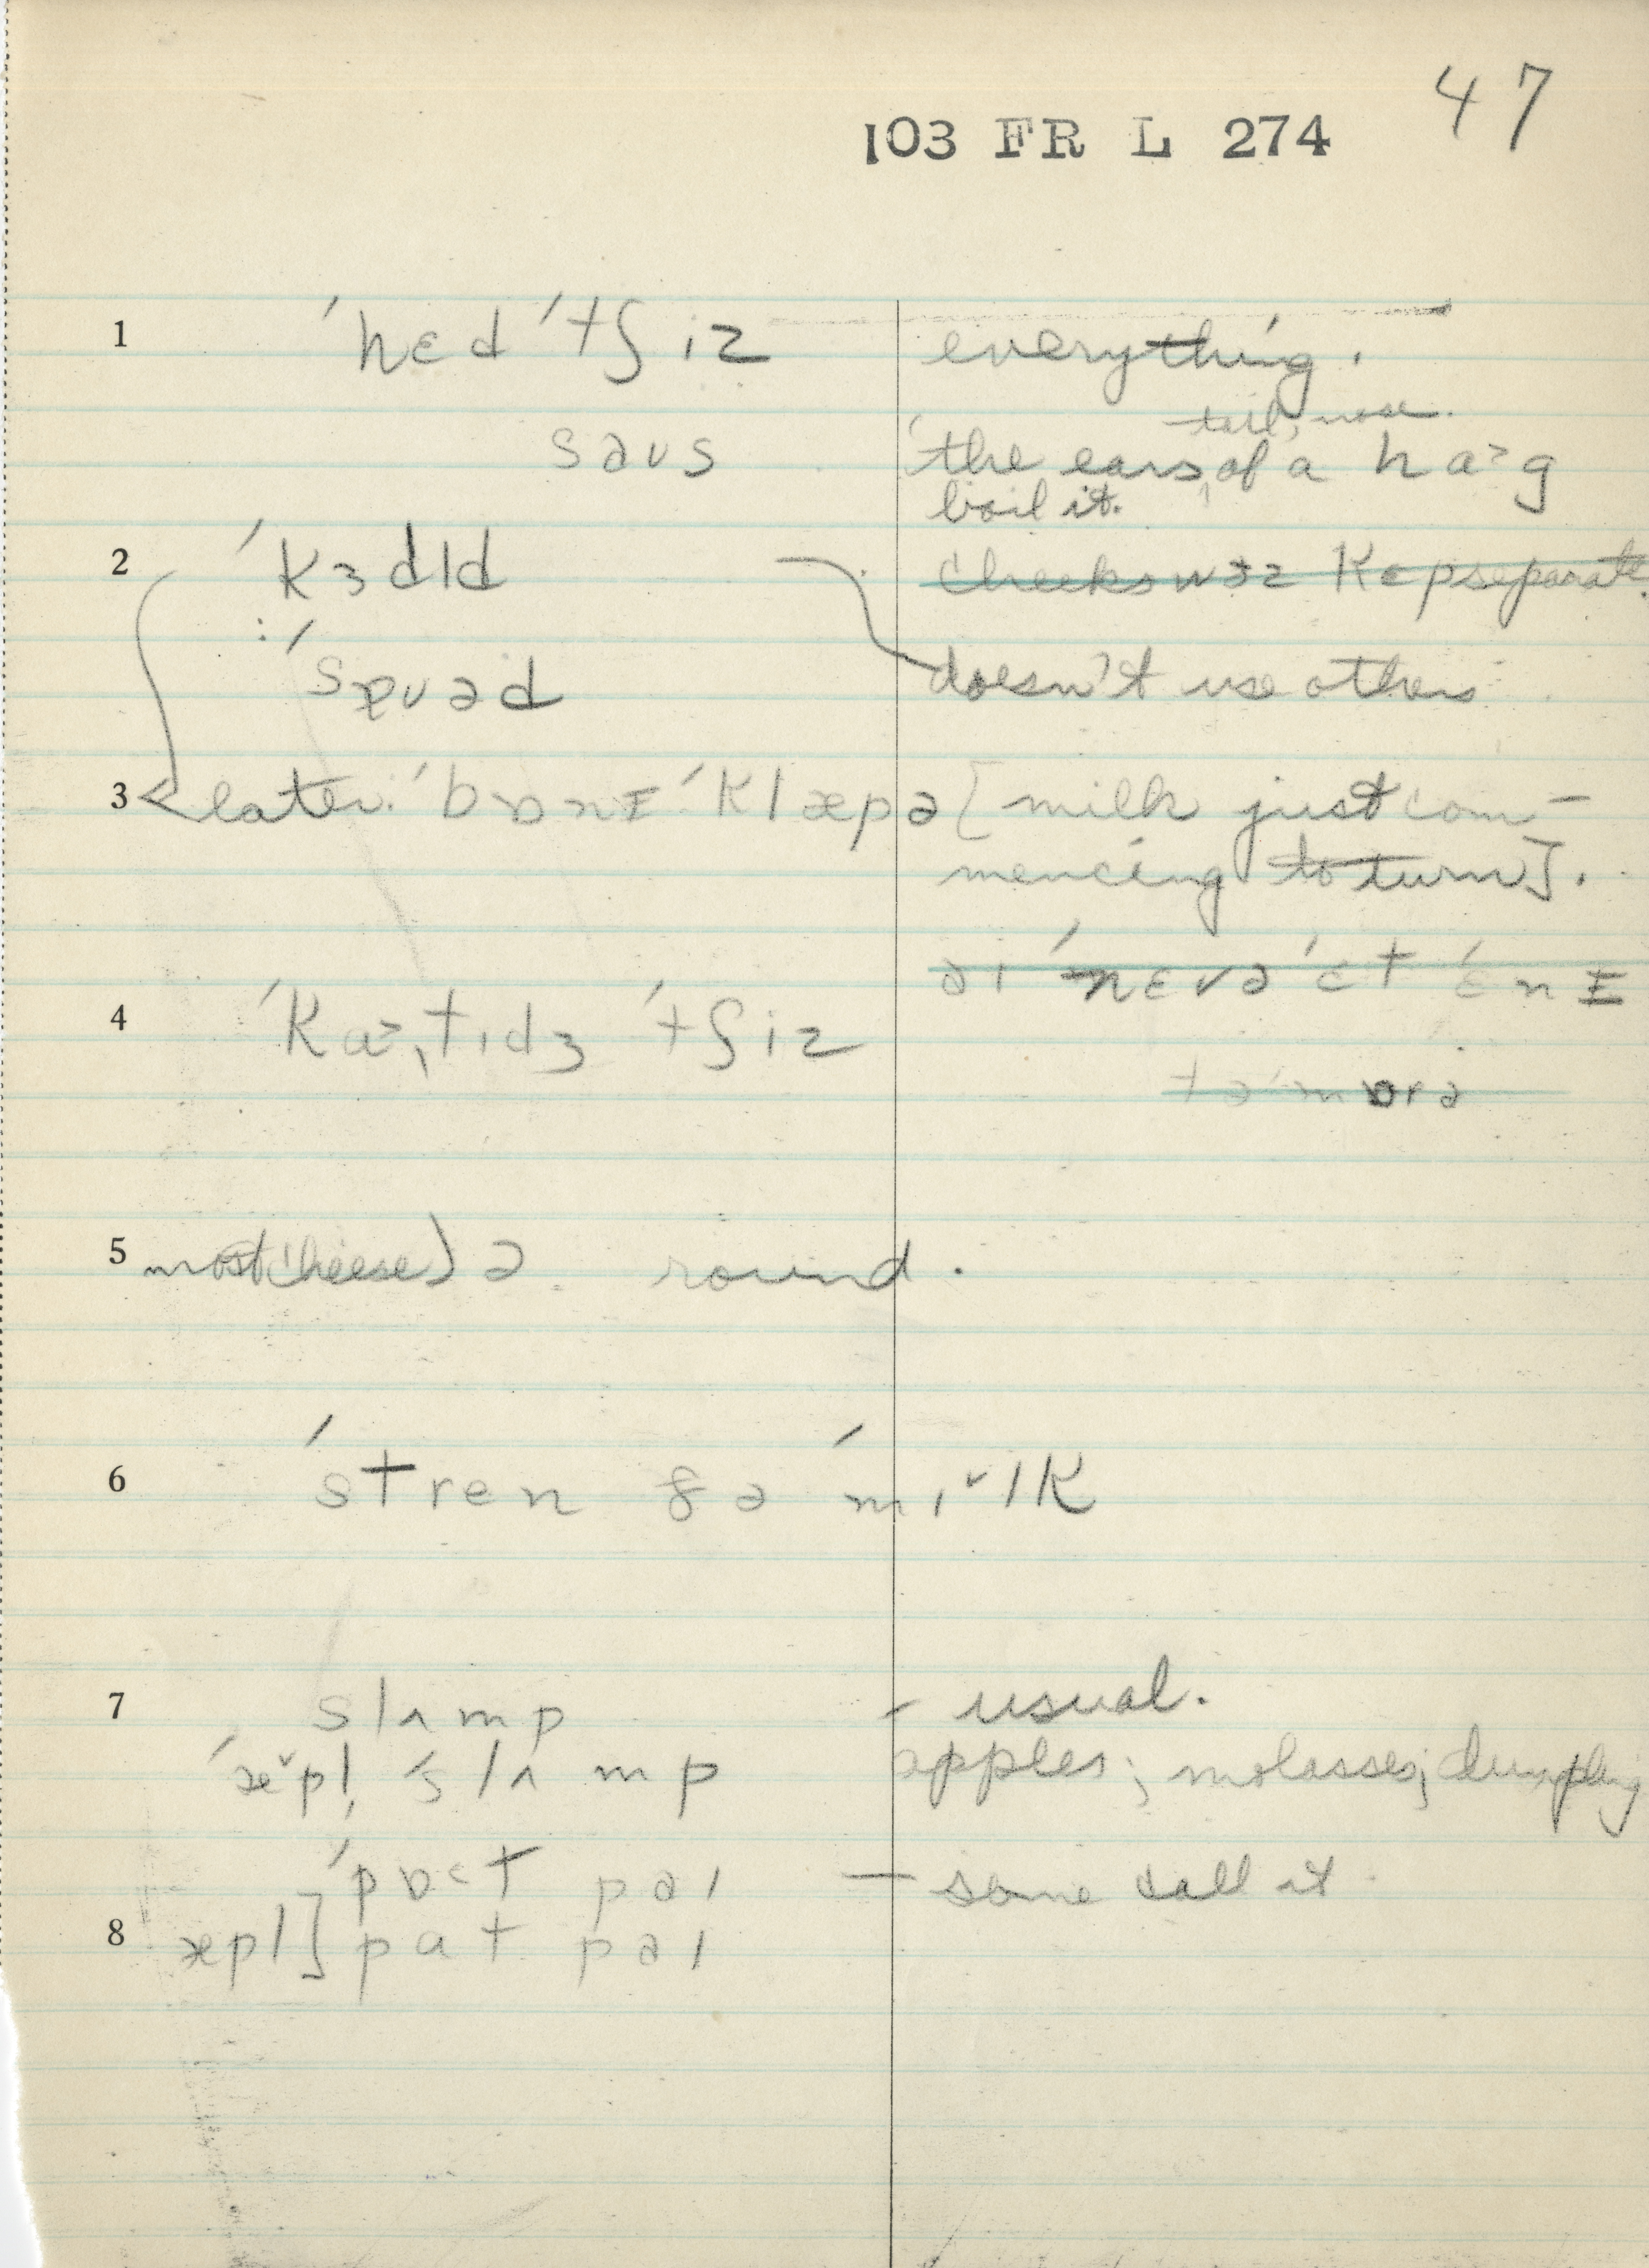 47
103 FR L 274
1 ˈhɛd ˈtʃiz everything.
tail, nose.
saʊs the ears, of a ha˃g
boil it.
2 ˈkɜdld cheeks wɜz kɛp separate.
: ˈspʊəd doesn't use others
3 later: ˈbɒnɪ ˈklæpə [milk just com-
mencing to turn].
aɪ ˈnɛvə ˈɛt ˈɛnɪ
4 ˈka˃ˌtɪdʒ ˈtʃiz
təˈmɒrə
5 most cheese) ə round.
6 ˈstren ðə ˈmɪˇlk
7 slʌmp - usual.
ˈæˇpl̩ ˈslʌmp apples; molasses; dumpling
ˈpɒ˂t paɪ — some call it
8 æpl] pat paɪ